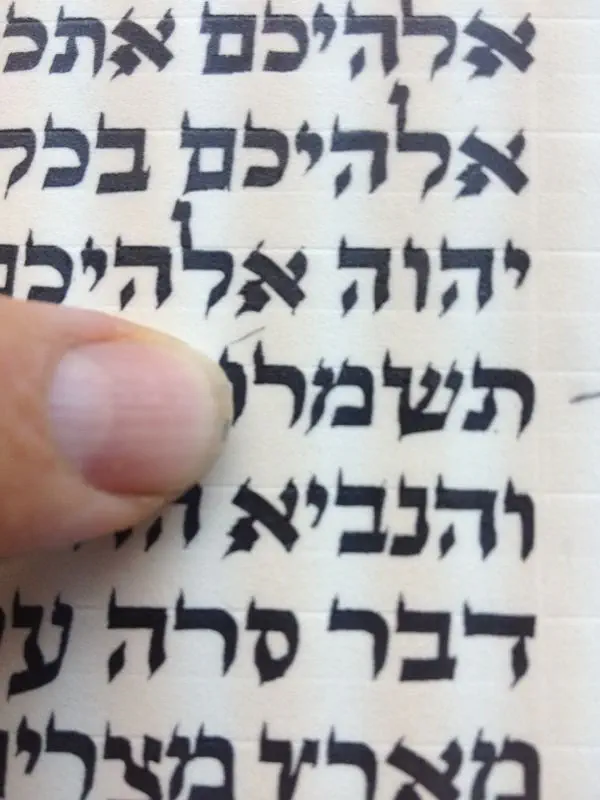 אלהיכם אתכ
אלהיכם בכל
יהוה אלהיכם
תשמרו
והנביא
דבר סרה על
מארץ מצרים